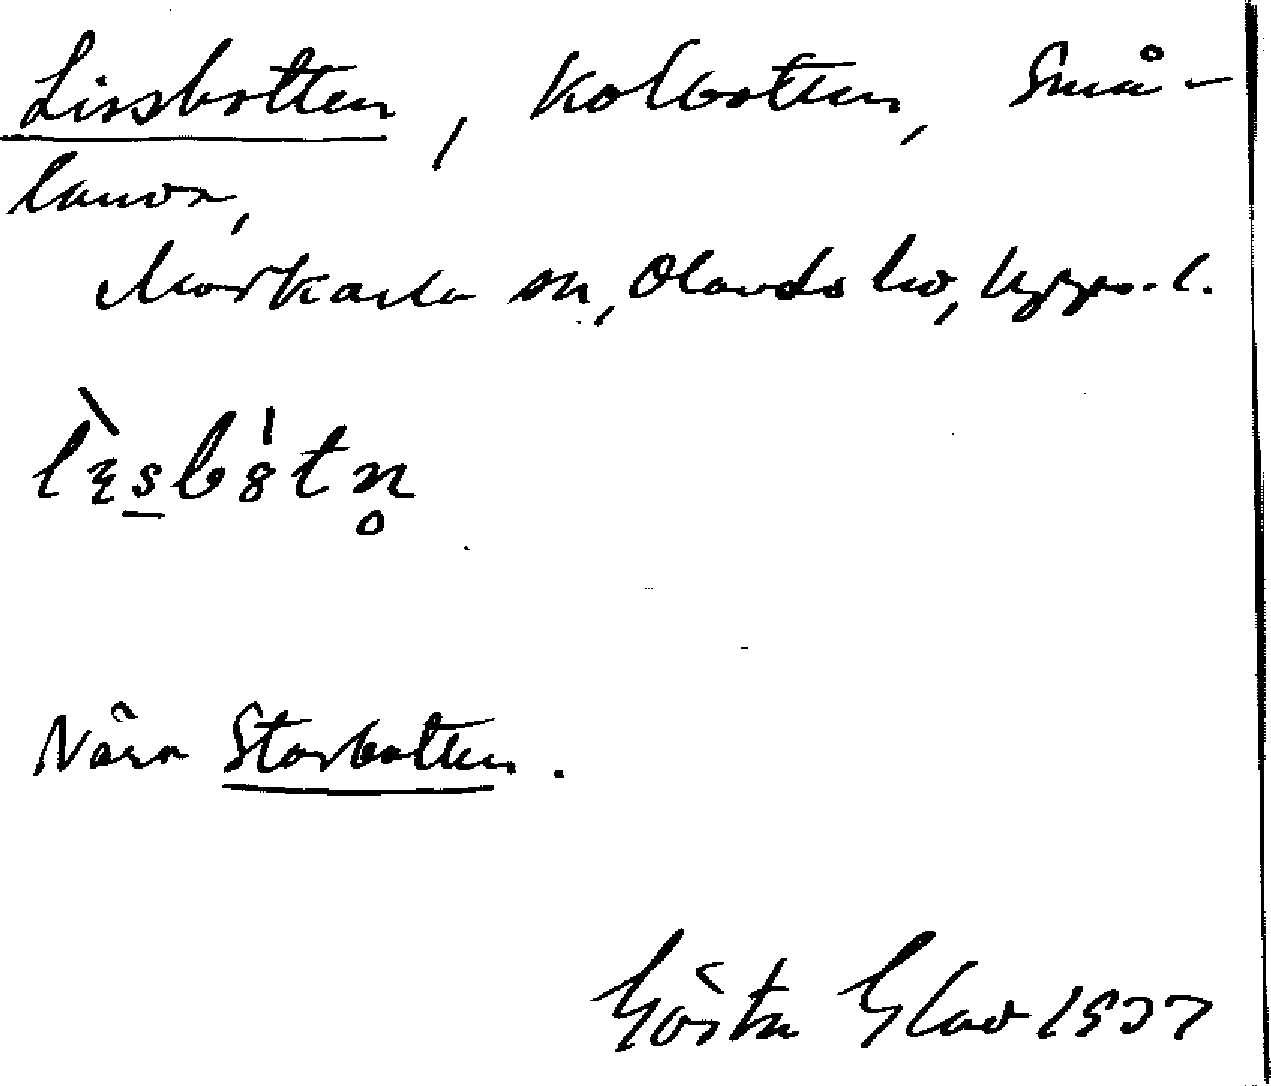 Lissbotten, Kolbotten, Små-
landa,
Morkarla sn, Olands hd, Upps. l.
Nära Storbotten.
Gösta Glad 1937